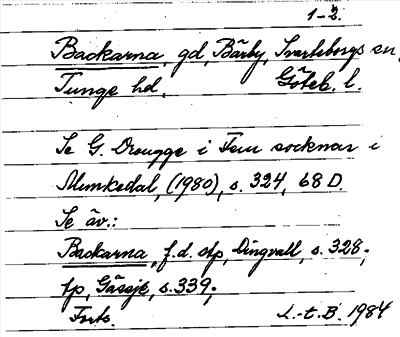 1-2.
Backarna, gd, Bärby, Svarteborgs sn,
Tunge hd, Göteb. l.
Se G. Drougge i Fem socknar i
Munkedal, (1980), s. 324, 68 D.
Se äv.:
Backarna, f.d. stp, Dingvall, s. 328;
tp, Gässje, s. 339;
Forts. L.-t. B. 1984